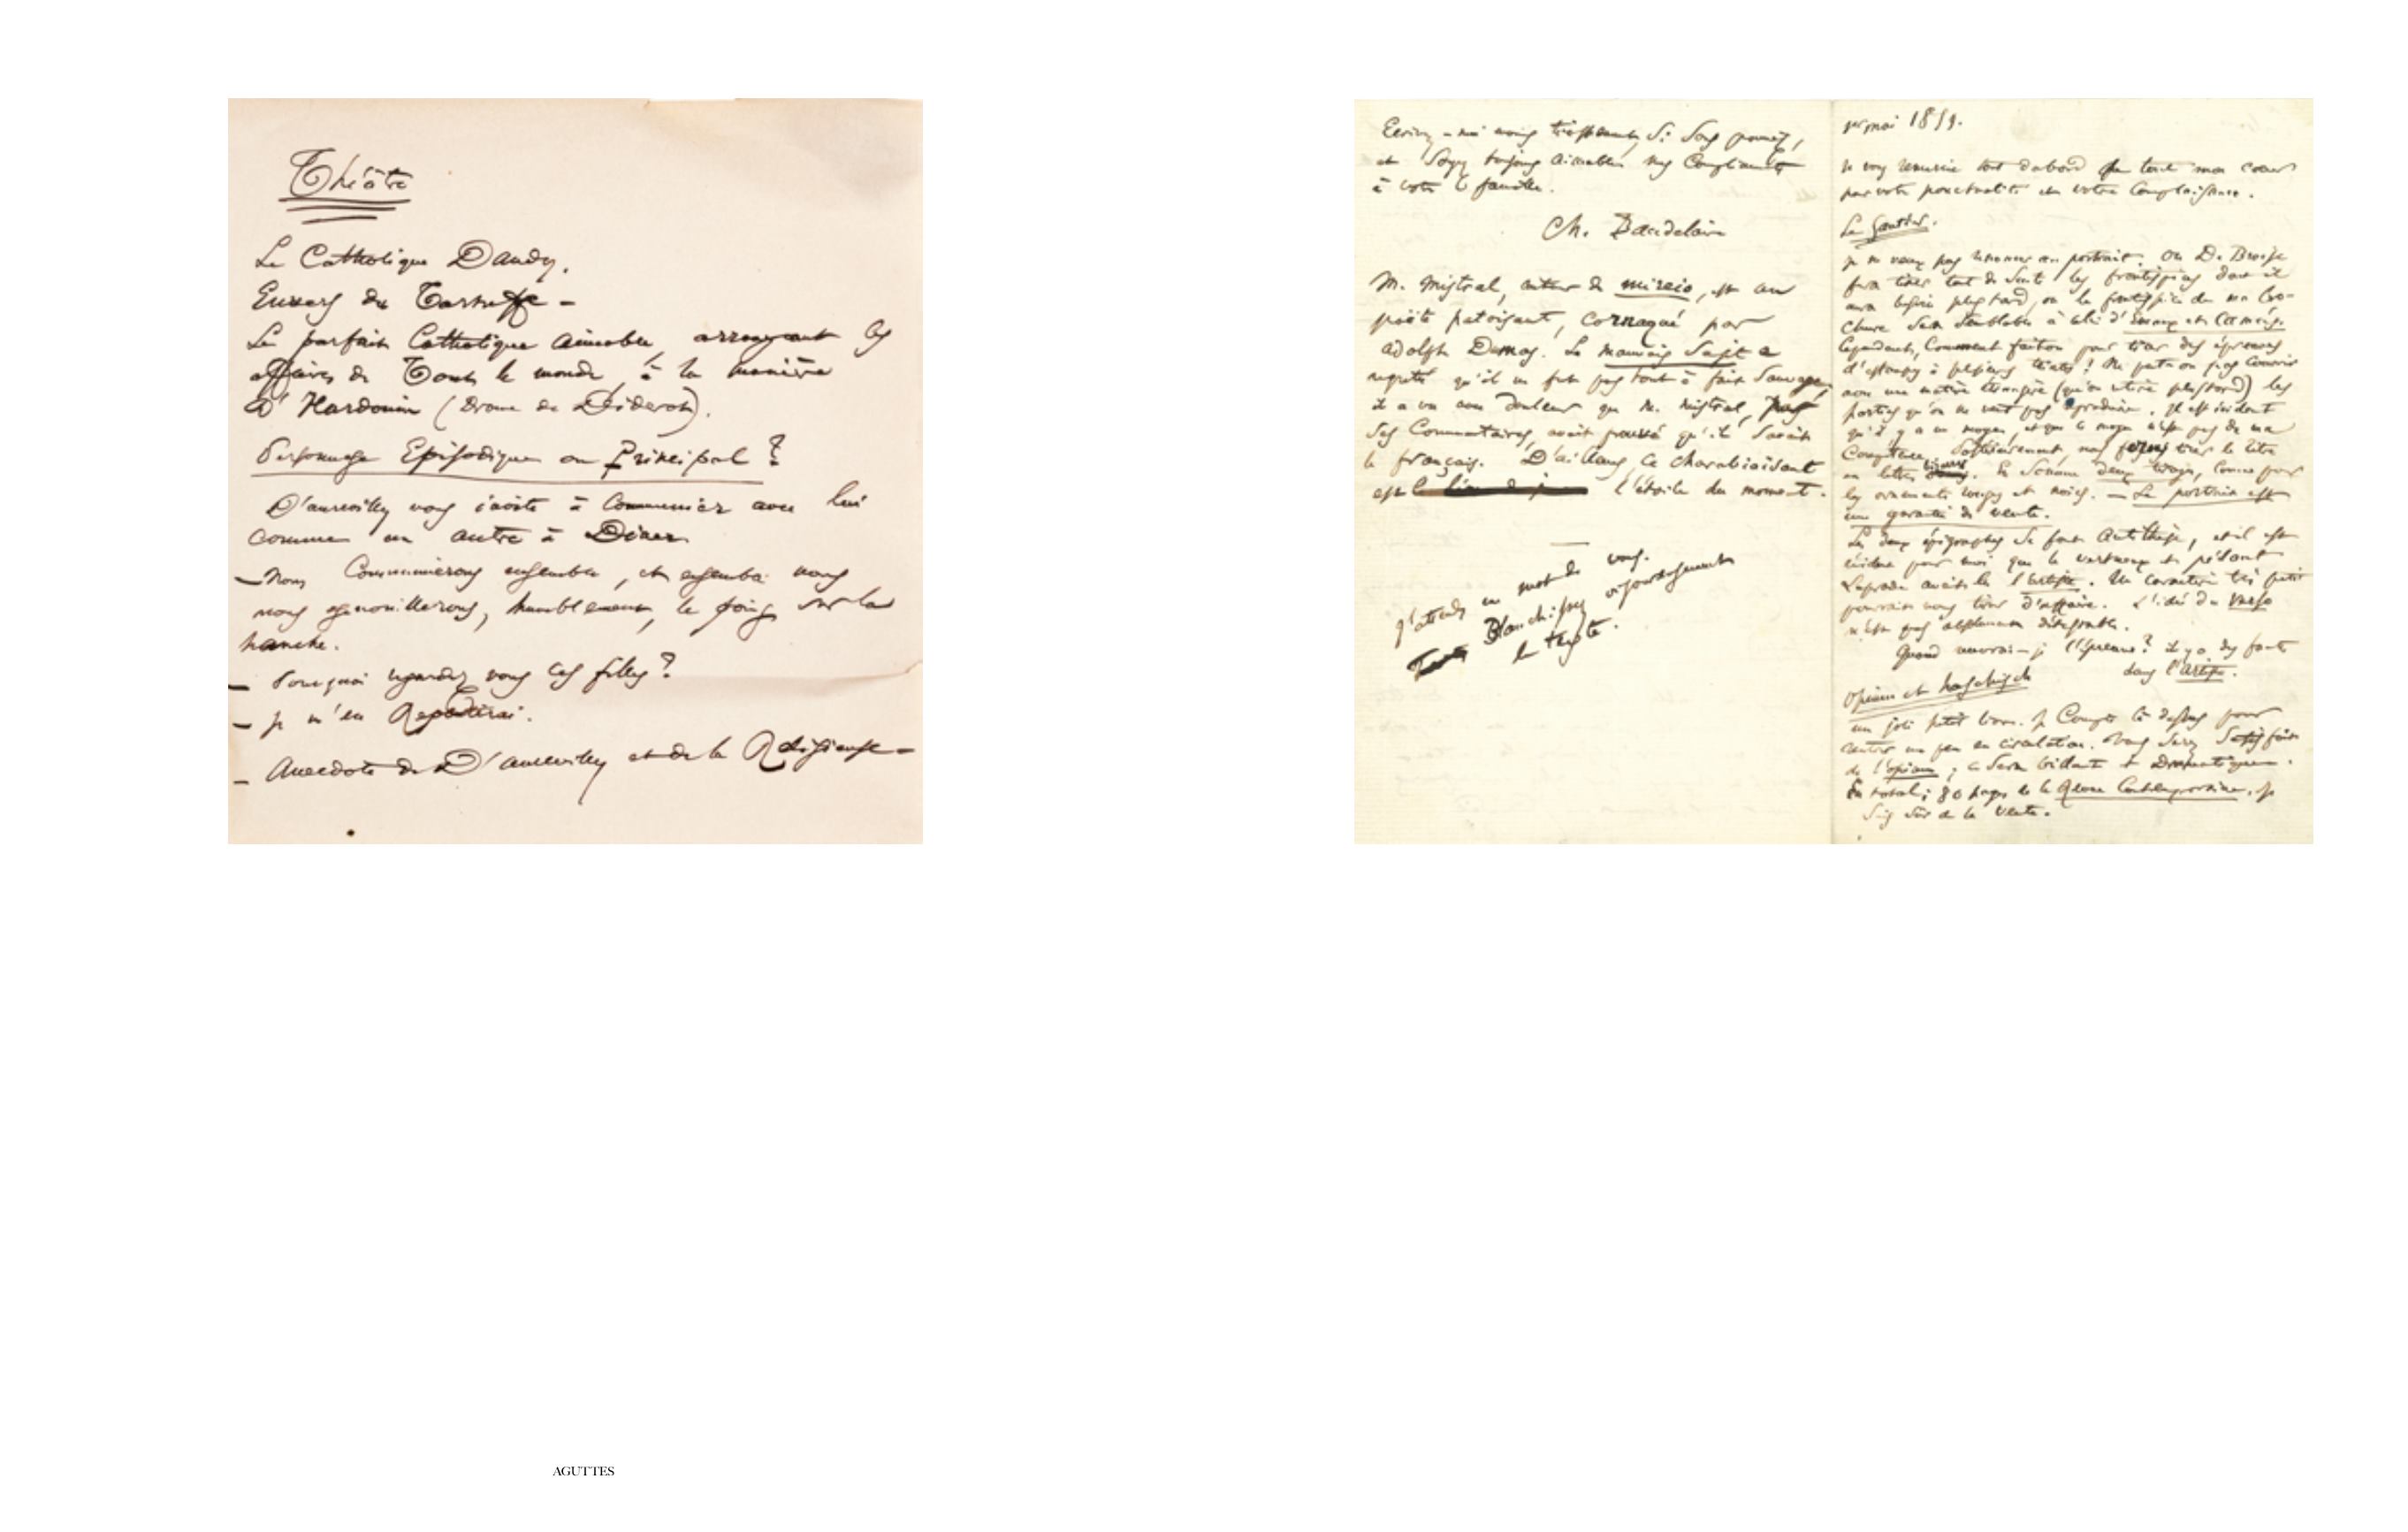 Théâtre
Le Catholique Dandy.
Envers du Tartuffe –
Le parfait Catholique aimable, arrangeant les
affaires de Tout le monde, à la manière
d'Hardouin (Drame de Diderot).
Personnage Episodique ou Principal ?
D'aurevilly vous invite à Communier avec lui
comme un autre à Diner
– Nous Communierons ensemble, et ensemble nous
nous agenouillerons, humblement, le poing sur la
hanche.
– Pourquoi regardez vous ces filles ?
– je m'en Repentirai.
– Anecdote de D'aurevilly et de la Religieuse –
Ecrivez-moi moins tristement, si vous pouvez,
et soyez toujours aimable. mes Compliments
à votre famille.
Ch. Baudelaire
M. Mistral, auteur de mireio, est un
poëte patoisant, cornaqué par
adolphe Dumas. Le mauvais sujet a
regretté qu'il ne fut pas tout à fait Sauvage,
il a vu avec douleur que M. Mistral, par
ses Commentaires, avait prouvé qu'il savait
le français. D'ailleurs, ce charabiaisant
est l'étoile du moment.
j'attends un mot de vous.
Blanchissez vigoureusement
le texte.
1er mai 1859.
je vous remercie tout d'abord de tout mon cœur
pour votre ponctualité et votre Complaisance.
Le Gautier.
je ne veux pas renoncer au portrait. Ou De Broise
fera tirer tout de suite les frontispices dont il
aura besoin plus tard, ou le frontispice de ma bro-
chure sera semblable à celui d'Emaux et Camées.
Cependant, Comment fait-on pour tirer des épreuves
d'estampes à plusieurs états ! Ne peut-on pas couvrir
avec une matière étrangère (qu'on retire plus tard) les
parties qu'on ne veut pas reproduire. Il est évident
qu'il y a un moyen, et que le moyen n'est pas de ma
Compétence. Postérieurement, nous ferons tirer le titre
en lettres rouges. En somme deux tirages, comme pour
les ornements rouges et noirs. – Le portrait est
une garantie de vente.
Les deux épigraphes se font antithèse, et il est
évident pour moi que le vertueux et pédant
Laprade avait lu l'artiste. Un caractère très petit
pourrait nous tirer d'affaire. L'idée du verso
n'est pas absolument détestable.
Quand aurai-je l'épreuve ? il y a des fautes
dans l'artiste.
Opium et haschisch
un joli petit livre. je Compte là dessus pour
rentrer un peu en circulation. Vous serez satisfait
de l'opium ; ce sera brillant et Dramatique.
En total ; 80 pages de la Revue Contemporaine. je
suis sûr de la vente.
AGUTTES